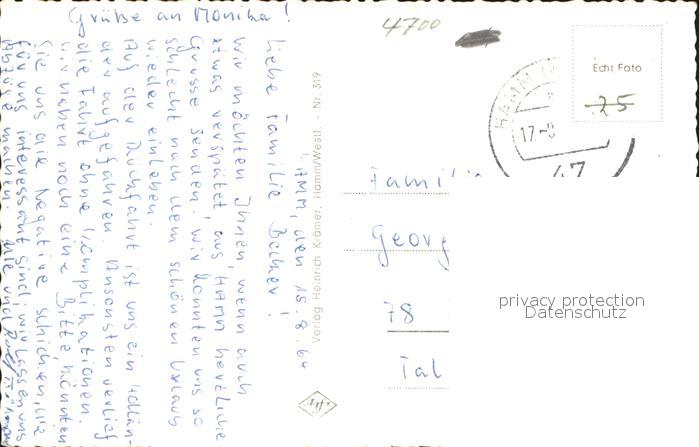 Grüße an Monika!
4700
HAMM, den 15.8.64
Liebe Familie Becker!
Wir möchten Ihnen, wenn auch
etwas verspätet, aus HAMM herzliche
Grüsse senden. Wir konnten uns so
schlecht nach dem schönen Urlaub
wieder einleben.
Auf der Rückfahrt ist uns ein Hollän-
der aufgefahren. Ansonsten verlief
die Fahrt ohne Komplikationen.
Wir haben noch eine Bitte, könnten
Sie uns die Negative schicken, die
für uns interessant sind, wir lassen uns
Abzüge machen.
Verlag Heinrich Krämer, Hamm/Westf. - Nr. 319
Echt Foto
25
HAMM
17.-8
47
Famili
Georg
78
Tal
privacy protection
Datenschutz